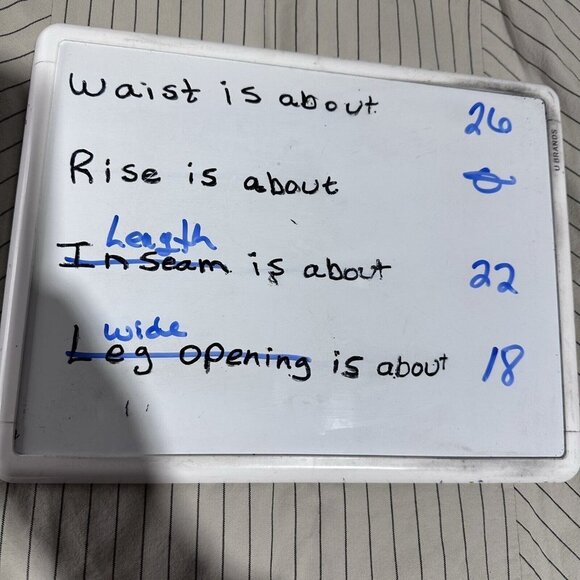 Waist is about 26
Rise is about
Length
Inseam is about 22
wide
Leg opening is about 18
U BRANDS